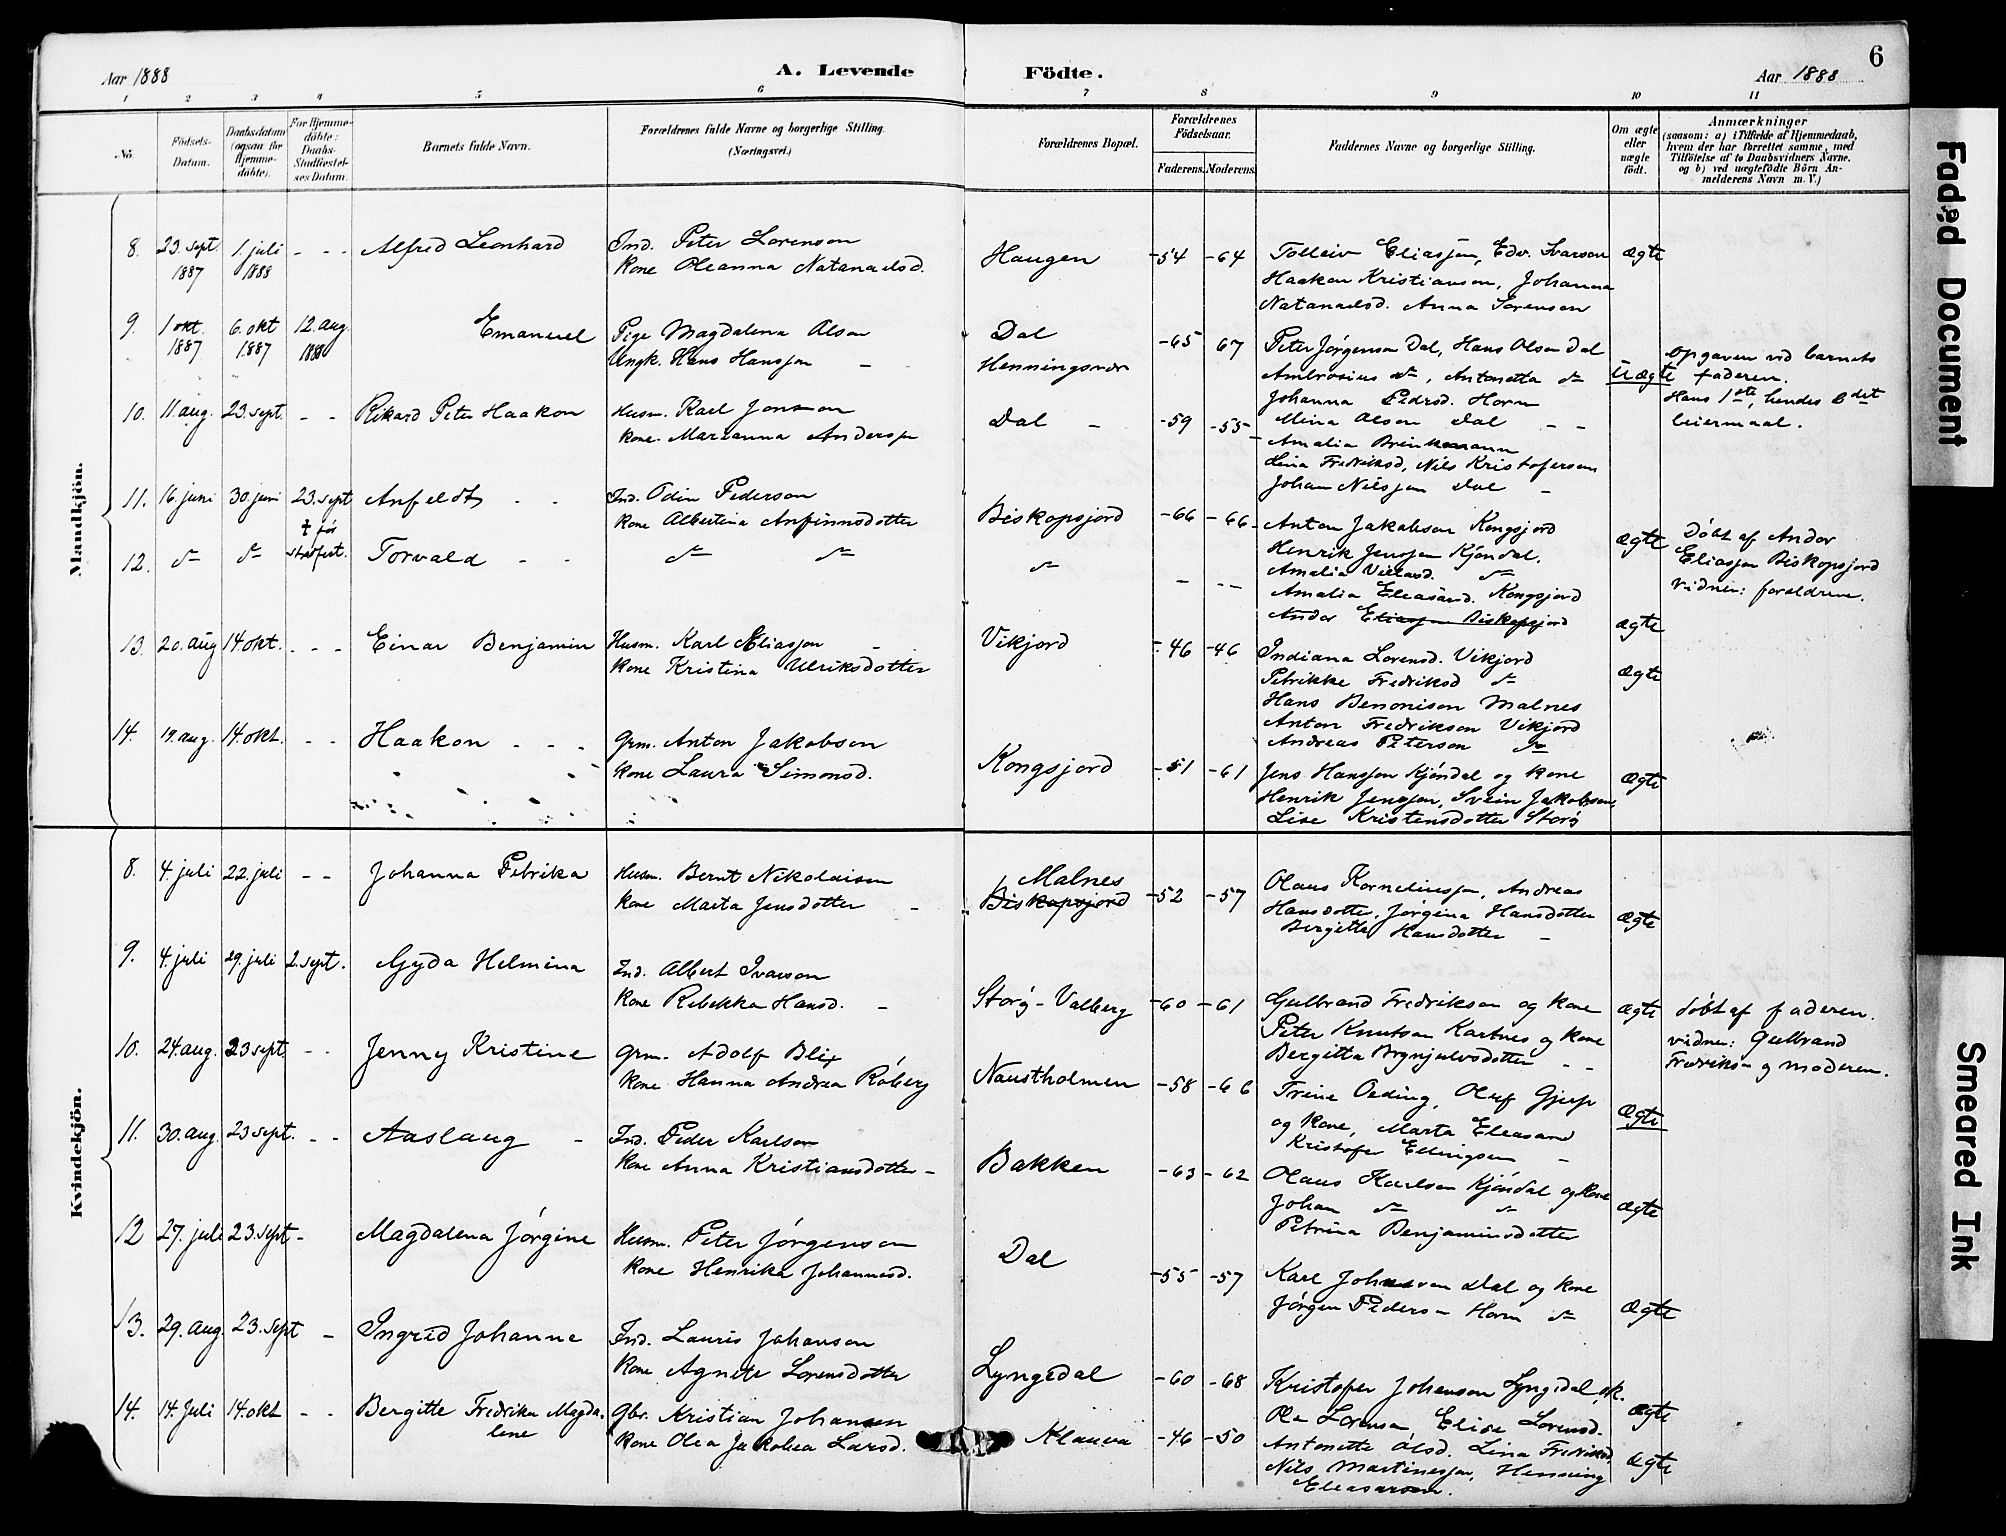 6
Aar 1888
A. Levende
Födte.
Aar 1888
1 2 3 4 5 6 7 8 9 10 11
No
Födsels-Datum.
Daabsdatum (ogsaa for Hjemme-döbte).
For Hjemme-döbte: Daabs-Stadfæstel-ses Datum.
Barnets fulde Navn.
Forældrenes fulde Navne og borgerlige Stilling. (Næringsvei.)
Forældrenes Bopæl.
Forældrenes Födselsaar.
Faderens. Moderens.
Faddernes Navne og borgerlige Stilling.
Om ægte eller uægte födt.
Anmærkninger
(saasom: a) i Tilfælde af Hjemmedaab,
hvem der har forrettet samme, med
Tilföielse af to Daabsvidners Navne.
og b) ved uægtefödte Börn An-
melderens Navn m. V.)
Mandkjön.
8. 23. sept. 1887 1. juli 1888 - - - Alfred Leonhard
Ind. Peter Lorenson
kone Oleanna Natanaelsd.
Haugen -54 -64
Tolleiv Eliassen, Edv. Ivarson
Haakon Kristianson, Johanna
Natanaelsd. Anna Sorenson
ægte
9. 1 okt. 1887 6. okt 1887 12. aug. 1888 Emanuel
Pige Magdalena Olson
Ungk. Hans Hansson -
Dal
Henningsvær
-65 67
Peter Jørgenson Dal, Hans Olson Dal
Ambrosius do, Antonetta do
Johanna Pedrsd. Horn
uægte
opgaven ved barnets
faderen.
Hans 1ste, hendes 2det
leiermaal.
10. 11 aug. 23. sept. - - Rikard Peter Haakon
Husm. Karl Jonson
kone. Marianna Anderson
Dal - -59 -55
Mina Olson Dal - -
Amalia Brinkmann
Lina Fredriksd, Nils Kristoferson
Johan Nilsson Dal -
11. 16. juni 30. juni 23. sept Anfeldt - -
Ind. Odin Pederson
kone Albertina Anfinnsdotter
Biskopsjord -66 -66
Anton Jakobson Kongsjord
Henrik Jensson Kjøndal.
Amalia Villasd. do
Amalia Eleasard. Kongsjord
Andor Eliasson Biskopsjord
ægte
døbt af Andor
Eliasson Biskopsjord
vidner: foreldrene.
12. do do † før stadfest. Torvald - -
do do
do - - -
ægte
13. 20. aug 14. okt. - - - Einar Benjamin
Husm. Karl Eliasson
kone Kristina Ulriksdotter
Vikjord -46 -46
Indiana Lorensd. Vikjord
Petrikke Fredriksd do
Hans Benonison Malnes
Anton Fredrikson Vikjord
Andreas Peterson do
ægte
14. 19. aug. 14. okt. - - Haakon - - -
Grm. Anton Jakobson
kone Laura Simonsd.
Kongsjord -51 -61
Jens Hansson Kjøndal og kone
Henrik Jensson, Svein Jakobson,
Lise Kristensdotter Storø
ægte
Kvindekjön.
8. 4. juli 22. juli - - Johanna Petrika
Husm. Bernt Nikolaisen
kone Marta Jensdotter -
Malnes
Biskopsjord
-52 -57
Olaus Korneliusson, Andreas
Hansdotter, Jørgina Hansdotter
Bergitte Hansdotter -
ægte
9. 4. juli 29. juli 2. sept. Gyda Helmina
Ind. Albert Ivarson
kone Rebekka Hansd. -
Storø - Valberg -60 -61
Gulbrand Fredrikson og kone
Peter Knutson Kartnes og kone
Bergitta Brynjulvsdotter - -
ægte
døbt af faderen.
vidner: Gulbrand
Fredriks- og moderen.
10. 24. aug. 23 sept. - - Jenny Kristine
Grm. Adolf Blix
kone Hanna Andrea Røberg
Naustholmen -58 -66
Trine Oeding, Oluf Gjerp
og kone, Marta Eleasard
Kristofer Ellingsen -
ægte
11. 30. aug. 23 sept. - - Aaslaug -
Ind. Peder Karlson
kone Anna Kristiansdotter -
Bakken -63 -62
Olaus Karlson Kjøndal og kone
Johan do do
Petrina Benjaminsdotter
ægte
12 27. juli 23. sept - Magdalena Jørgine
Husm. Peter Jørgenson
kone Henrika Johannesd.
Dal -55 -57
Karl Johnson Dal og kone
Jørgen Peders- Horn do
ægte
13. 29. aug. 23. sept - Ingrid Johanne
Ind. Lauris Johanson
kone Agnete Lorensdotter
Lyngedal -60 -68
Kristofer Johanson Lyngedal, ok.
Ole Lorenson, Elise Lorensd.
ægte
14. 14. Juli 14. okt - - Bergitte Fredrika Magda-
lene
Gbr. Kristian Johansen
kone Olea Jakobea Larsd.
Klauva -46 -50
Antonette Olsd. Lina Fredriksd
Nils Martinesson, Henning
Eleasarson.
ægte
Faded Document
Smeared Ink